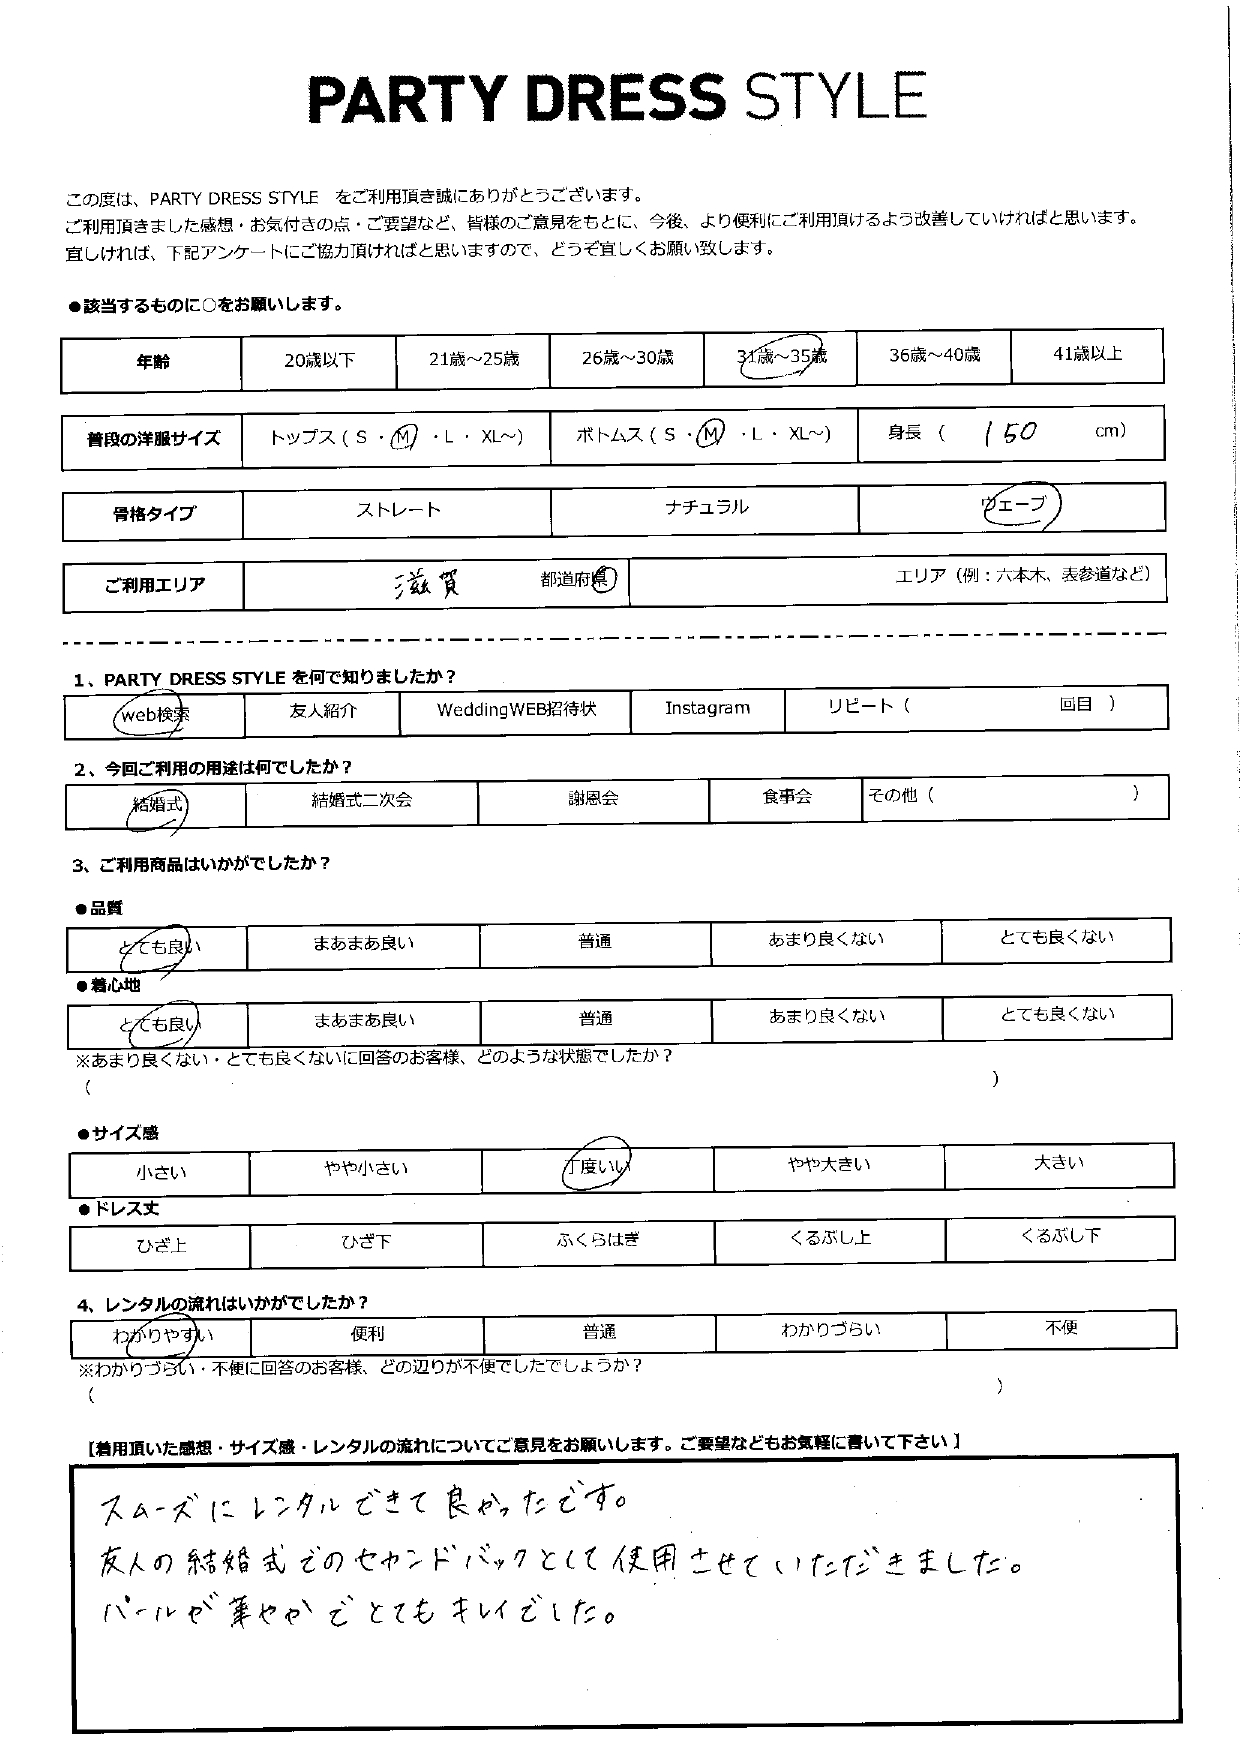 PARTY DRESS STYLE
この度は、PARTY DRESS STYLE をご利用頂き誠にありがとうございます。
ご利用頂きました感想・お気付きの点・ご要望など、皆様のご意見をもとに、今後、より便利にご利用頂けるよう改善していければと思います。
宜しければ、下記アンケートにご協力頂ければと思いますので、どうぞ宜しくお願い致します。
●該当するものに○をお願いします。
年齢 20歳以下 21歳～25歳 26歳～30歳 31歳～35歳 36歳～40歳 41歳以上
普段の洋服サイズ トップス ( S ・ M ・ L ・ XL～) ボトムス ( S ・ M ・ L ・ XL～) 身長 ( 150 cm)
骨格タイプ ストレート ナチュラル ウェーブ
ご利用エリア 滋賀 都道府県 エリア（例：六本木、表参道など）
1、PARTY DRESS STYLE を何で知りましたか？
web検索 友人紹介 WeddingWEB招待状 Instagram リピート（ 回目 ）
2、今回ご利用の用途は何でしたか？
結婚式 結婚式二次会 謝恩会 食事会 その他（ ）
3、ご利用商品はいかがでしたか？
●品質
とても良い まあまあ良い 普通 あまり良くない とても良くない
●着心地
とても良い まあまあ良い 普通 あまり良くない とても良くない
※あまり良くない・とても良くないに回答のお客様、どのような状態でしたか？
（ ）
●サイズ感
小さい やや小さい 丁度いい やや大きい 大きい
●ドレス丈
ひざ上 ひざ下 ふくらはぎ くるぶし上 くるぶし下
4、レンタルの流れはいかがでしたか？
わかりやすい 便利 普通 わかりづらい 不便
※わかりづらい・不便に回答のお客様、どの辺りが不便でしたでしょうか？
（ ）
【着用頂いた感想・サイズ感・レンタルの流れについてご意見をお願いします。ご要望などもお気軽に書いて下さい】
スムーズにレンタルできて良かったです。
友人の結婚式でのセカンドバックとして使用させていただきました。
パールが華やかでとてもキレイでした。